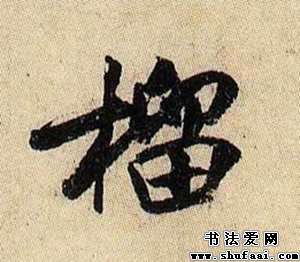 榴
书法爱网
www.shufaai.com